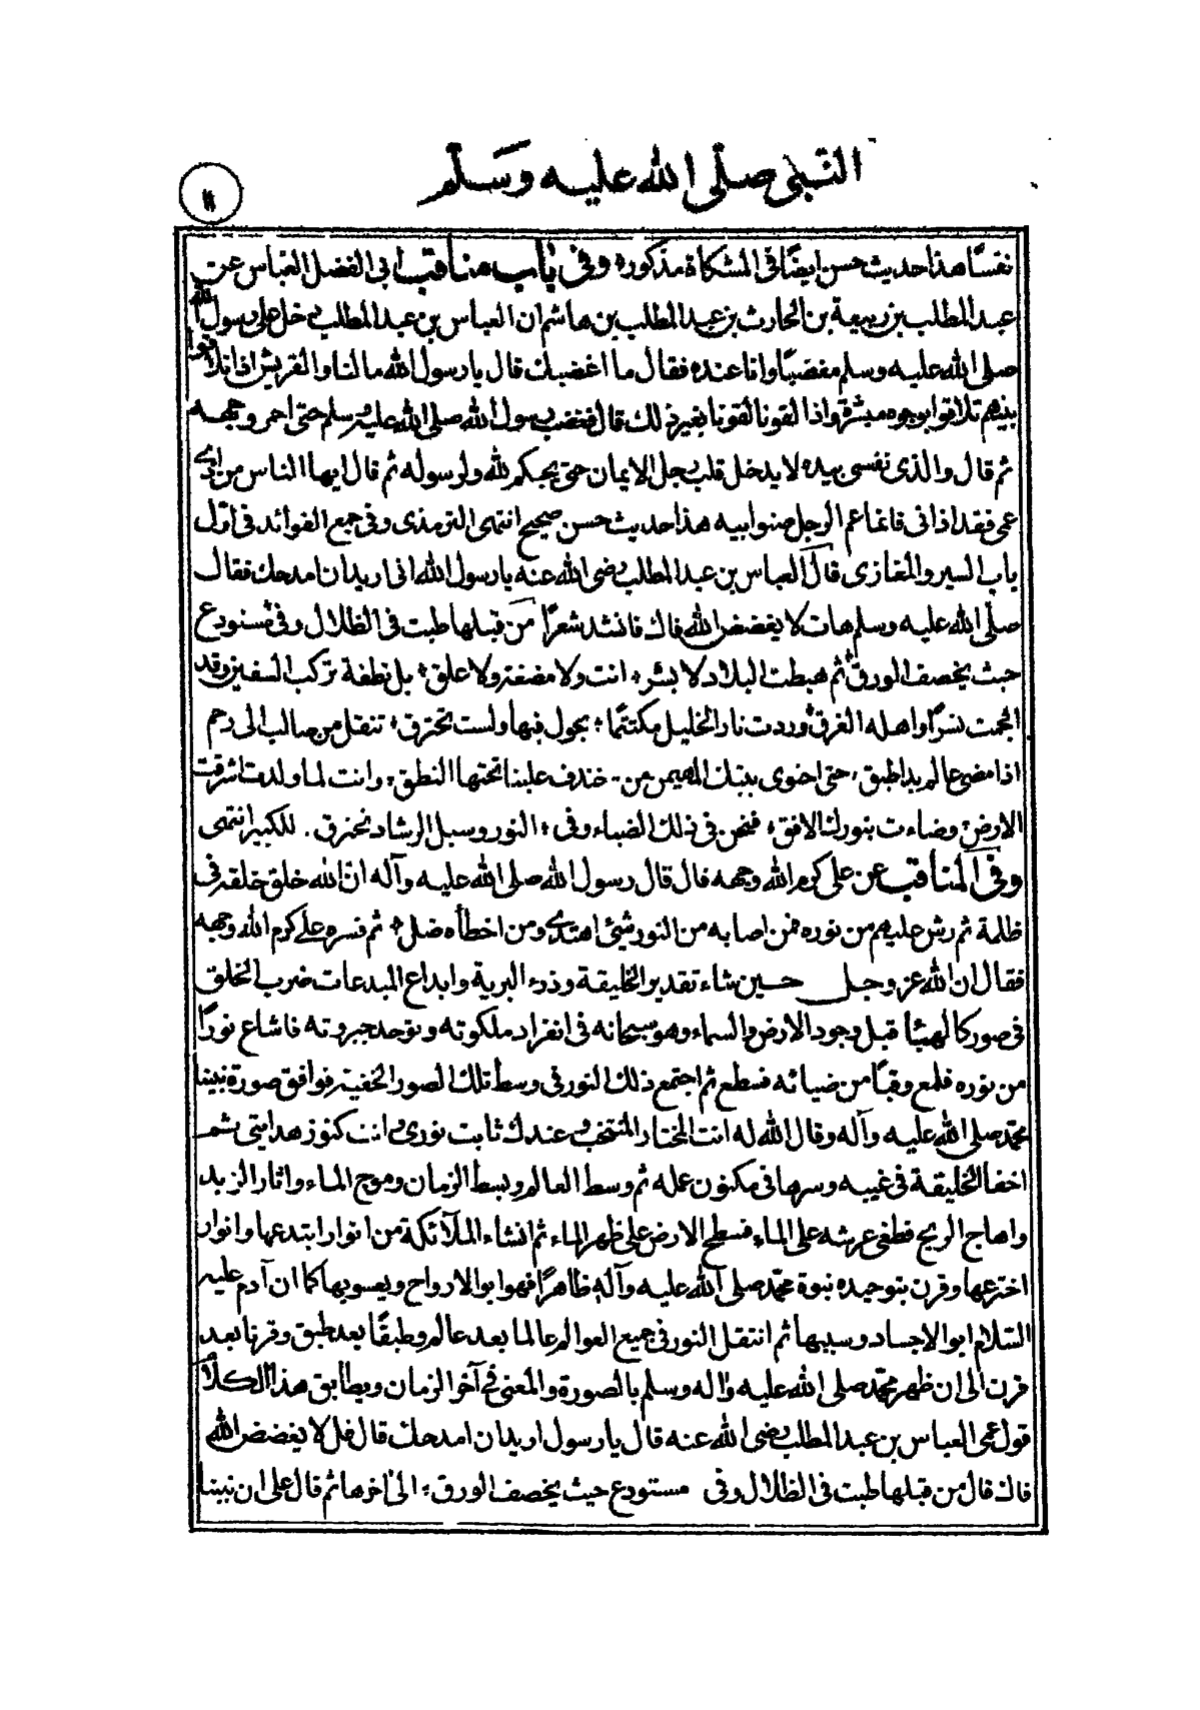 النبی صلی الله علیه وسلم
۱۱
نفسًا هذا حدیث حسن ایضًا فی المشکاة مذکوره وفی باب مناقب ابی الفضل العباس عن
عبد المطلب بن ربیعة بن الحارث بن عبد المطلب بن هاشم ان العباس بن عبد المطلب دخل علی رسول الله
صلی الله علیه وسلم مغضبًا وانا عنده فقال ما اغضبك قال یا رسول الله ما لنا والقریش اذا تلاقوا
بینهم تلاقوا بوجوه مبشرة واذا لقونا لقونا بغیر ذلك قال فغضب رسول الله صلی الله علیه وسلم حتی احمر وجهه
ثم قال والذی نفسی بیده لا یدخل قلب رجل الایمان حتی یحبکم لله ولرسوله ثم قال ایها الناس من اذی
عمی فقد اذانی فانما عم الرجل صنو ابیه هذا حدیث حسن صحیح انتهی الترمذی وفی جمع الفوائد فی اول
باب السیر والمغازی قال العباس بن عبد المطلب رضی الله عنه یا رسول الله انی ارید ان امدحك فقال
صلی الله علیه وسلم هات لا یغضض الله فاك فانشد شعرًا من قبلها طبت فی الظلال وفی مستودع
حیث یخصف الورق ثم هبطت البلاد لا بشر، انت ولا مضغة ولا علق؛ بل نطفة ترکب السفین وقد
الجمت نسرًا واهله الغرق وردت نار الخلیل مکتتمًا؛ یجول فیها ولست تحترق؛ تنقل من صالب الی رحم
اذا مضی عالم بدا طبق، حتی احتوی بیتك المهیمن من - خندف علینا تحتها النطق؛ وانت لما ولدت اشرقت
الارض؛ وضاءت بنورك الافق؛ فنحن فی ذلك الضیاء وفی؛ النور وسبل الرشاد نخترق. للکبیر انتهی
وفی المناقب عن علی کرم الله وجهه قال قال رسول الله صلی الله علیه وآله ان الله خلق خلقه فی
ظلمة ثم رش علیهم من نوره فمن اصابه من النور شیئ اهتدی ومن اخطأه ضل؛ ثم فسره علی کرم الله وجهه
فقال ان الله عز وجل حسین شاء تقدیر الخلیقة وذرء البریة وابداع المبدعات ضرب الخلق
فی صور کالهبئا قبل وجود الارض والسماء وهو سبحانه فی انفراد ملکوته وتوحد جبروته فاشاع نورًا
من نوره فلمع وقبًا من ضیائه فسطع ثم اجتمع ذلك النور فی وسط تلك الصور الخفیة فوافق صورة نبینا
محمد صلی الله علیه وآله وقال الله له انت المختار المنتخب وعندك ثابت نوری وانت کنوز هدایتی ثم
اخفا الخلیقة فی غیبه وسرها فی مکنون علمه ثم وسط العالم وبسط الزمان وموج الماء واثار الزبد
واهاج الریح فطفی عرشه علی الماء فسطح الارض علی ظهر الماء ثم انشاء الملآئکة من انوار ابتدعها وانوار
اخترعها وقرن بتوحیده نبوة محمد صلی الله علیه وآله ظاهرًا فهو ابو الارواح ویعسوبها کما ان آدم علیه
السلام ابو الاجساد وسببها ثم انتقل النور فی جمیع العوالم عالما بعد عالم وطبقًا بعد طبق وقرنا بعد
قرن الی ان ظهر محمد صلی الله علیه واله وسلم بالصورة والمعنی فی آخر الزمان ویطابق هذا الکلام
قول عمی العباس بن عبد المطلب رضی الله عنه قال یا رسول ارید ان امدحك قال قل لا یغضض الله
فاك قال من قبلها طبت فی الظلال وفی مستودع حیث یخصف الورق؛ الی اخرها ثم قال علی ان نبینا